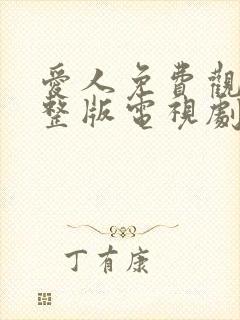 愛人免費觀
整版電視劇
丁有康